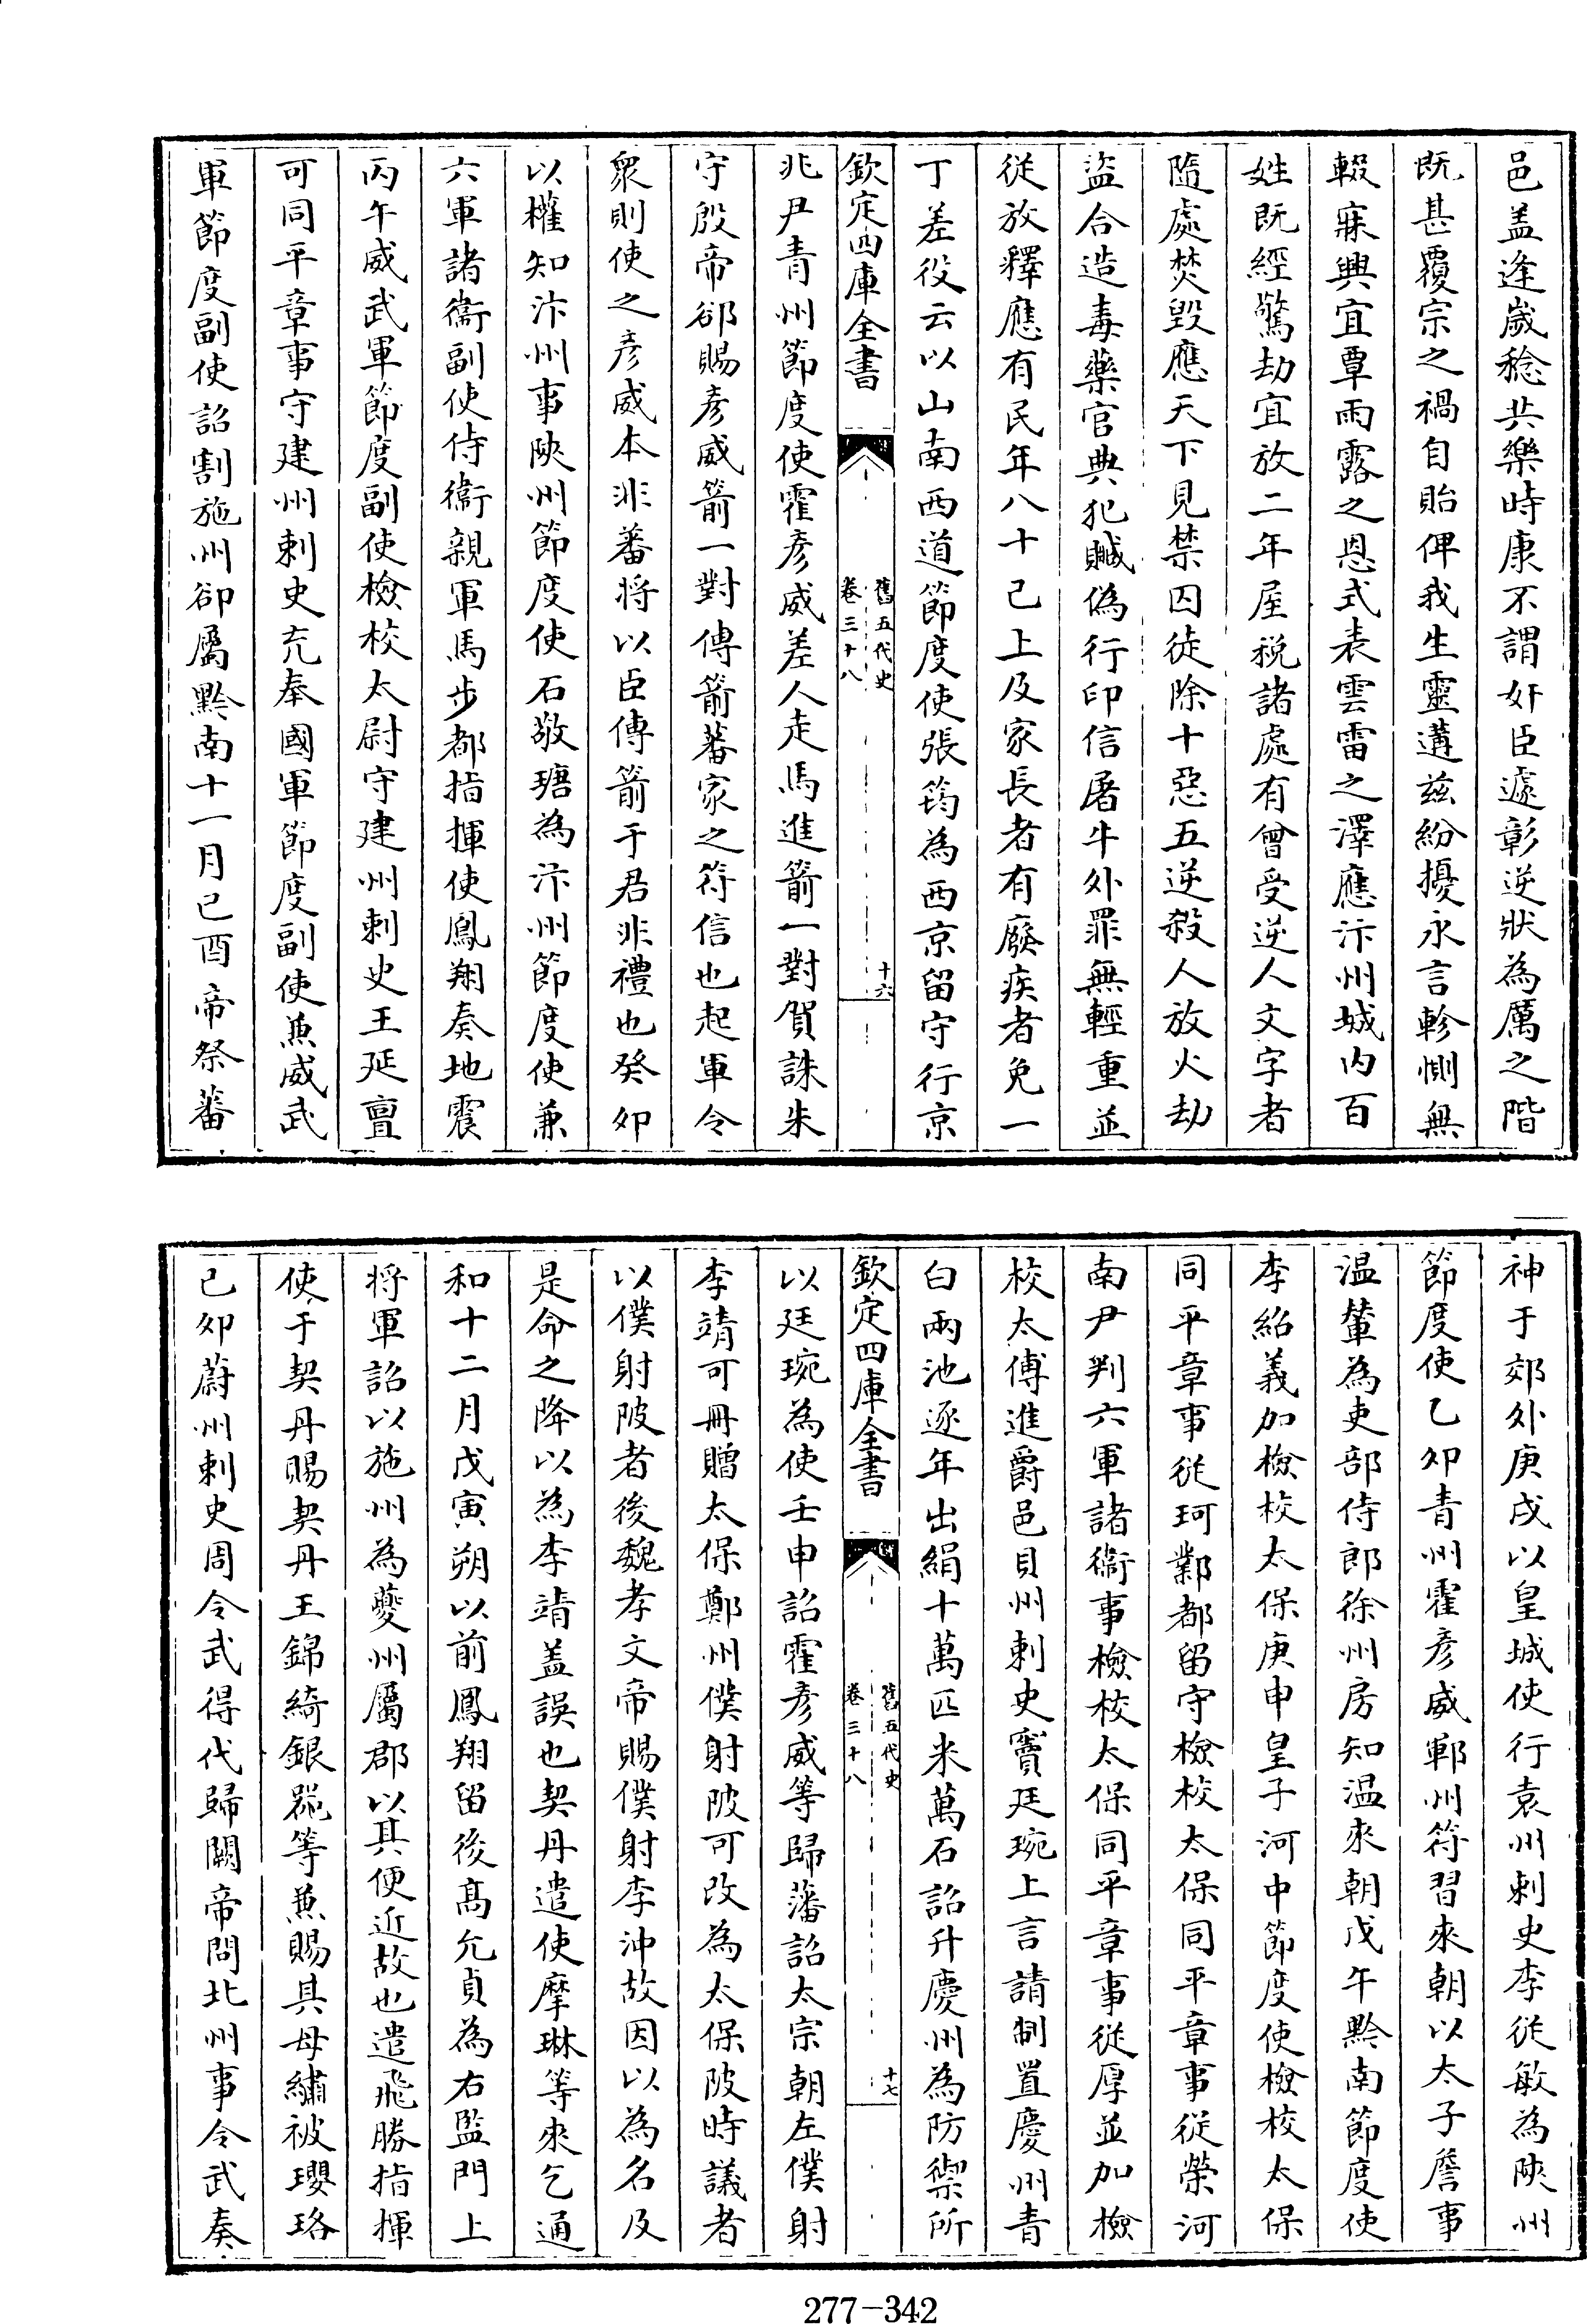 邑盖逢嵗稔共樂時康不謂奸臣遽彰逆狀為厲之階
既甚覆宗之禍自貽俾我生靈遘兹紛擾永言軫惻無
輟寐興宜覃雨露之恩式表雲雷之澤應汴州城内百
姓既經驚劫宜放二年屋税諸處有曾受逆人文字者
隨處焚毁應天下見禁囚徒除十惡五逆殺人放火劫
盜合造毒藥官典犯贓偽行印信屠牛外罪無輕重並
從放釋應有民年八十已上及家長者有廢疾者免一
丁差役云以山南西道節度使張筠為西京留守行京
欽定四庫全書
舊五代史
卷三十八
十六
兆尹青州節度使霍彦威差人走馬進箭一對賀誅朱
守殷帝郤賜彦威箭一對傳箭蕃家之符信也起軍令
衆則使之彦威本非蕃將以臣傳箭于君非禮也癸夘
以權知汴州事陜州節度使石敬瑭為汴州節度使兼
六軍諸衞副使侍衞親軍馬步都指揮使鳳翔奏地震
丙午威武軍節度副使檢校太尉守建州刺史王延亶
可同平章事守建州刺史充奉國軍節度副使兼威武
軍節度副使詔割施州卻屬黔南十一月已酉帝祭蕃
神于郊外庚戌以皇城使行袁州刺史李從敏為陜州
節度使乙夘青州霍彦威鄆州符習來朝以太子詹事
温輦為吏部侍郎徐州房知温來朝戊午黔南節度使
李紹義加檢校太保庚申皇子河中節度使檢校太保
同平章事從珂鄴都留守檢校太保同平章事從榮河
南尹判六軍諸衞事檢校太保同平章事從厚並加檢
校太傅進爵邑貝州刺史竇廷琬上言請制置慶州青
白兩池逐年出絹十萬匹米萬石詔升慶州為防禦所
欽定四庫全書
舊五代史
卷三十八
十七
以廷琬為使壬申詔霍彦威等歸藩詔太宗朝左僕射
李靖可冊贈太保鄭州僕射陂可改為太保陂時議者
以僕射陂者後魏孝文帝賜僕射李沖故因以為名及
是命之降以為李靖盖誤也契丹遣使摩琳等來乞通
和十二月戊寅朔以前鳳翔留後髙允貞為右監門上
將軍詔以施州為夔州屬郡以其便近故也遣飛勝指揮
使于契丹賜契丹王錦綺銀器等兼賜其母繡被瓔珞
己夘蔚州刺史周令武得代歸闕帝問北州事令武奏
277-342